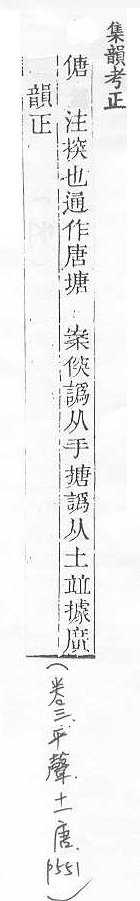 集韻考正
傏　注揬也通作唐塘　案㑐譌从手搪譌从土並據廣
韻正
（卷三、平聲、十一唐、p551）